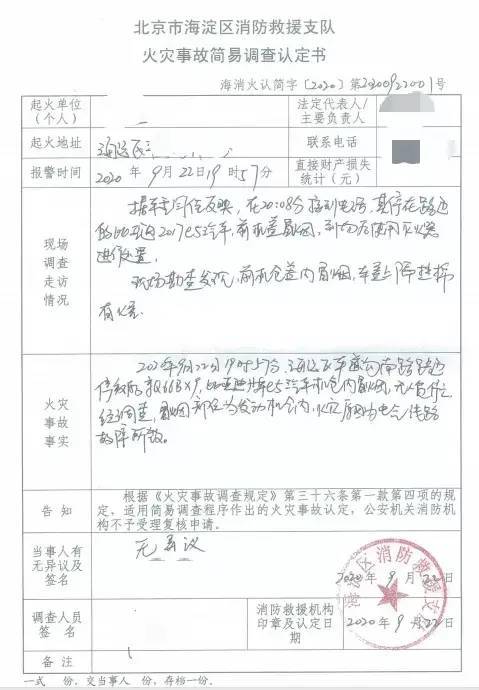 北京市海淀区消防救援支队
火灾事故简易调查认定书
海消火认简字〔2020〕第200922001号
起火单位
(个人)
法定代表人/
主要负责人
起火地址
海淀区
联系电话
报警时间
2020年9月22日19时57分
直接财产损失
统计(元)
现场
调查
走访
情况
据车主同住反映,在20:08分接到电话,其停在路边
的比亚迪2017e5汽车,前机盖冒烟,到场后使用灭火器
进行处置。
现场勘查发现,前机仓盖内冒烟,车
有
火灾
事故
事实
2020年9月22日19时57分,海淀区
停放的京Q66BX7,比亚迪牌e5汽车机仓内冒烟,无人员伤亡
经调查,冒烟部位为发动机仓内,火灾原因为电气线路
故障所致。
告 知
根据《火灾事故调查规定》第三十六条第一款第四项的规
定,适用简易调查程序作出的火灾事故认定,公安机关消防机
构不予受理复核申请。
当事人有
无异议及
签名
无异议
2020年9月22日
海淀区消防救援支队
调查人员
签 名
消防救援机构
印章及认定日
期
2020年9月22日
备 注
一式 份,交当事人 份,存档一份。